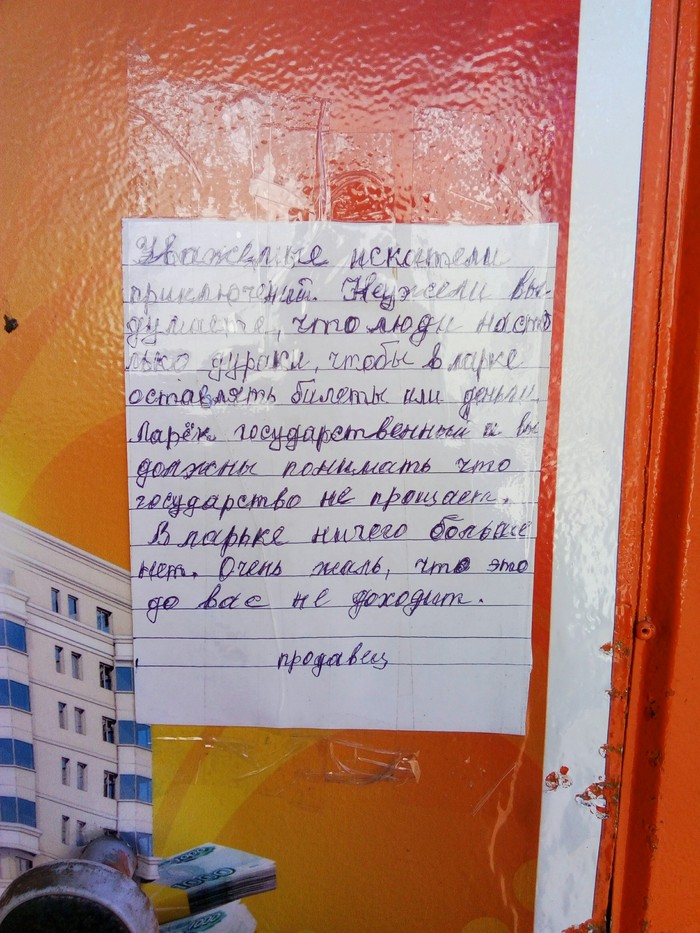 Уважаемые искатели
приключений. Неужели вы
думаете, что люди насто
лько дураки, чтобы в ларке
оставлять билеты или деньги
Ларёк государственный и вы
должны понимать что
государство не прощает.
В ларьке ничего больше
нет. Очень жаль, что это
до вас не доходит.
продавец
1000